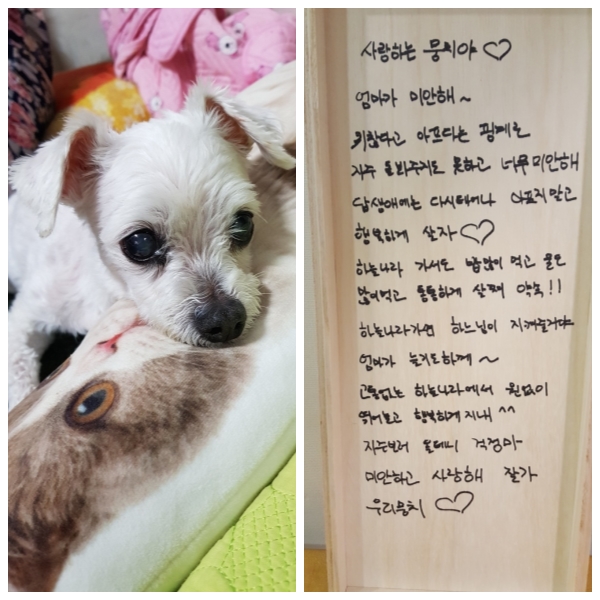 사랑하는 뭉치야 ♡
엄마가 미안해~
귀찮다고 아프다는 핑계로
자주 돌봐주지도 못하고 너무 미안해
담생애에는 다시태어나 아프지말고
행복하게 살자 ♡
하늘나라 가서도 밥많이 먹고 물도
많이먹고 통통하게 살쪄 약속!!
하늘나라가면 하느님이 지켜줄거야
엄마가 늘기도하께~
고통없는 하늘나라에서 원없이
뛰어놀고 행복하게지내^^
자주보러 올테니 걱정마
미안하고 사랑해 잘가
우리뭉치 ♡